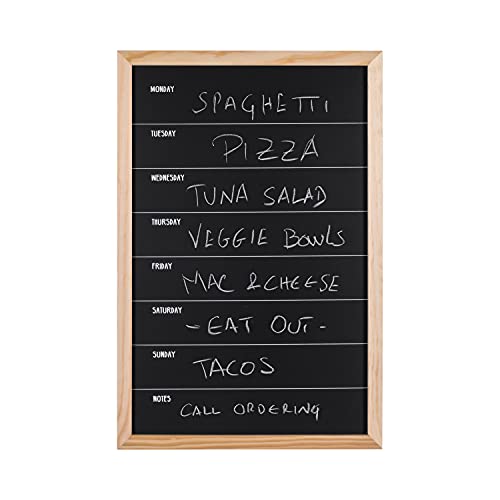 MONDAY
SPAGHETTI
TUESDAY
PIZZA
WEDNESDAY
TUNA SALAD
THURSDAY
VEGGIE BOWLS
FRIDAY
MAC & CHEESE
SATURDAY
- EAT OUT -
SUNDAY
TACOS
NOTES
CALL ORDERING